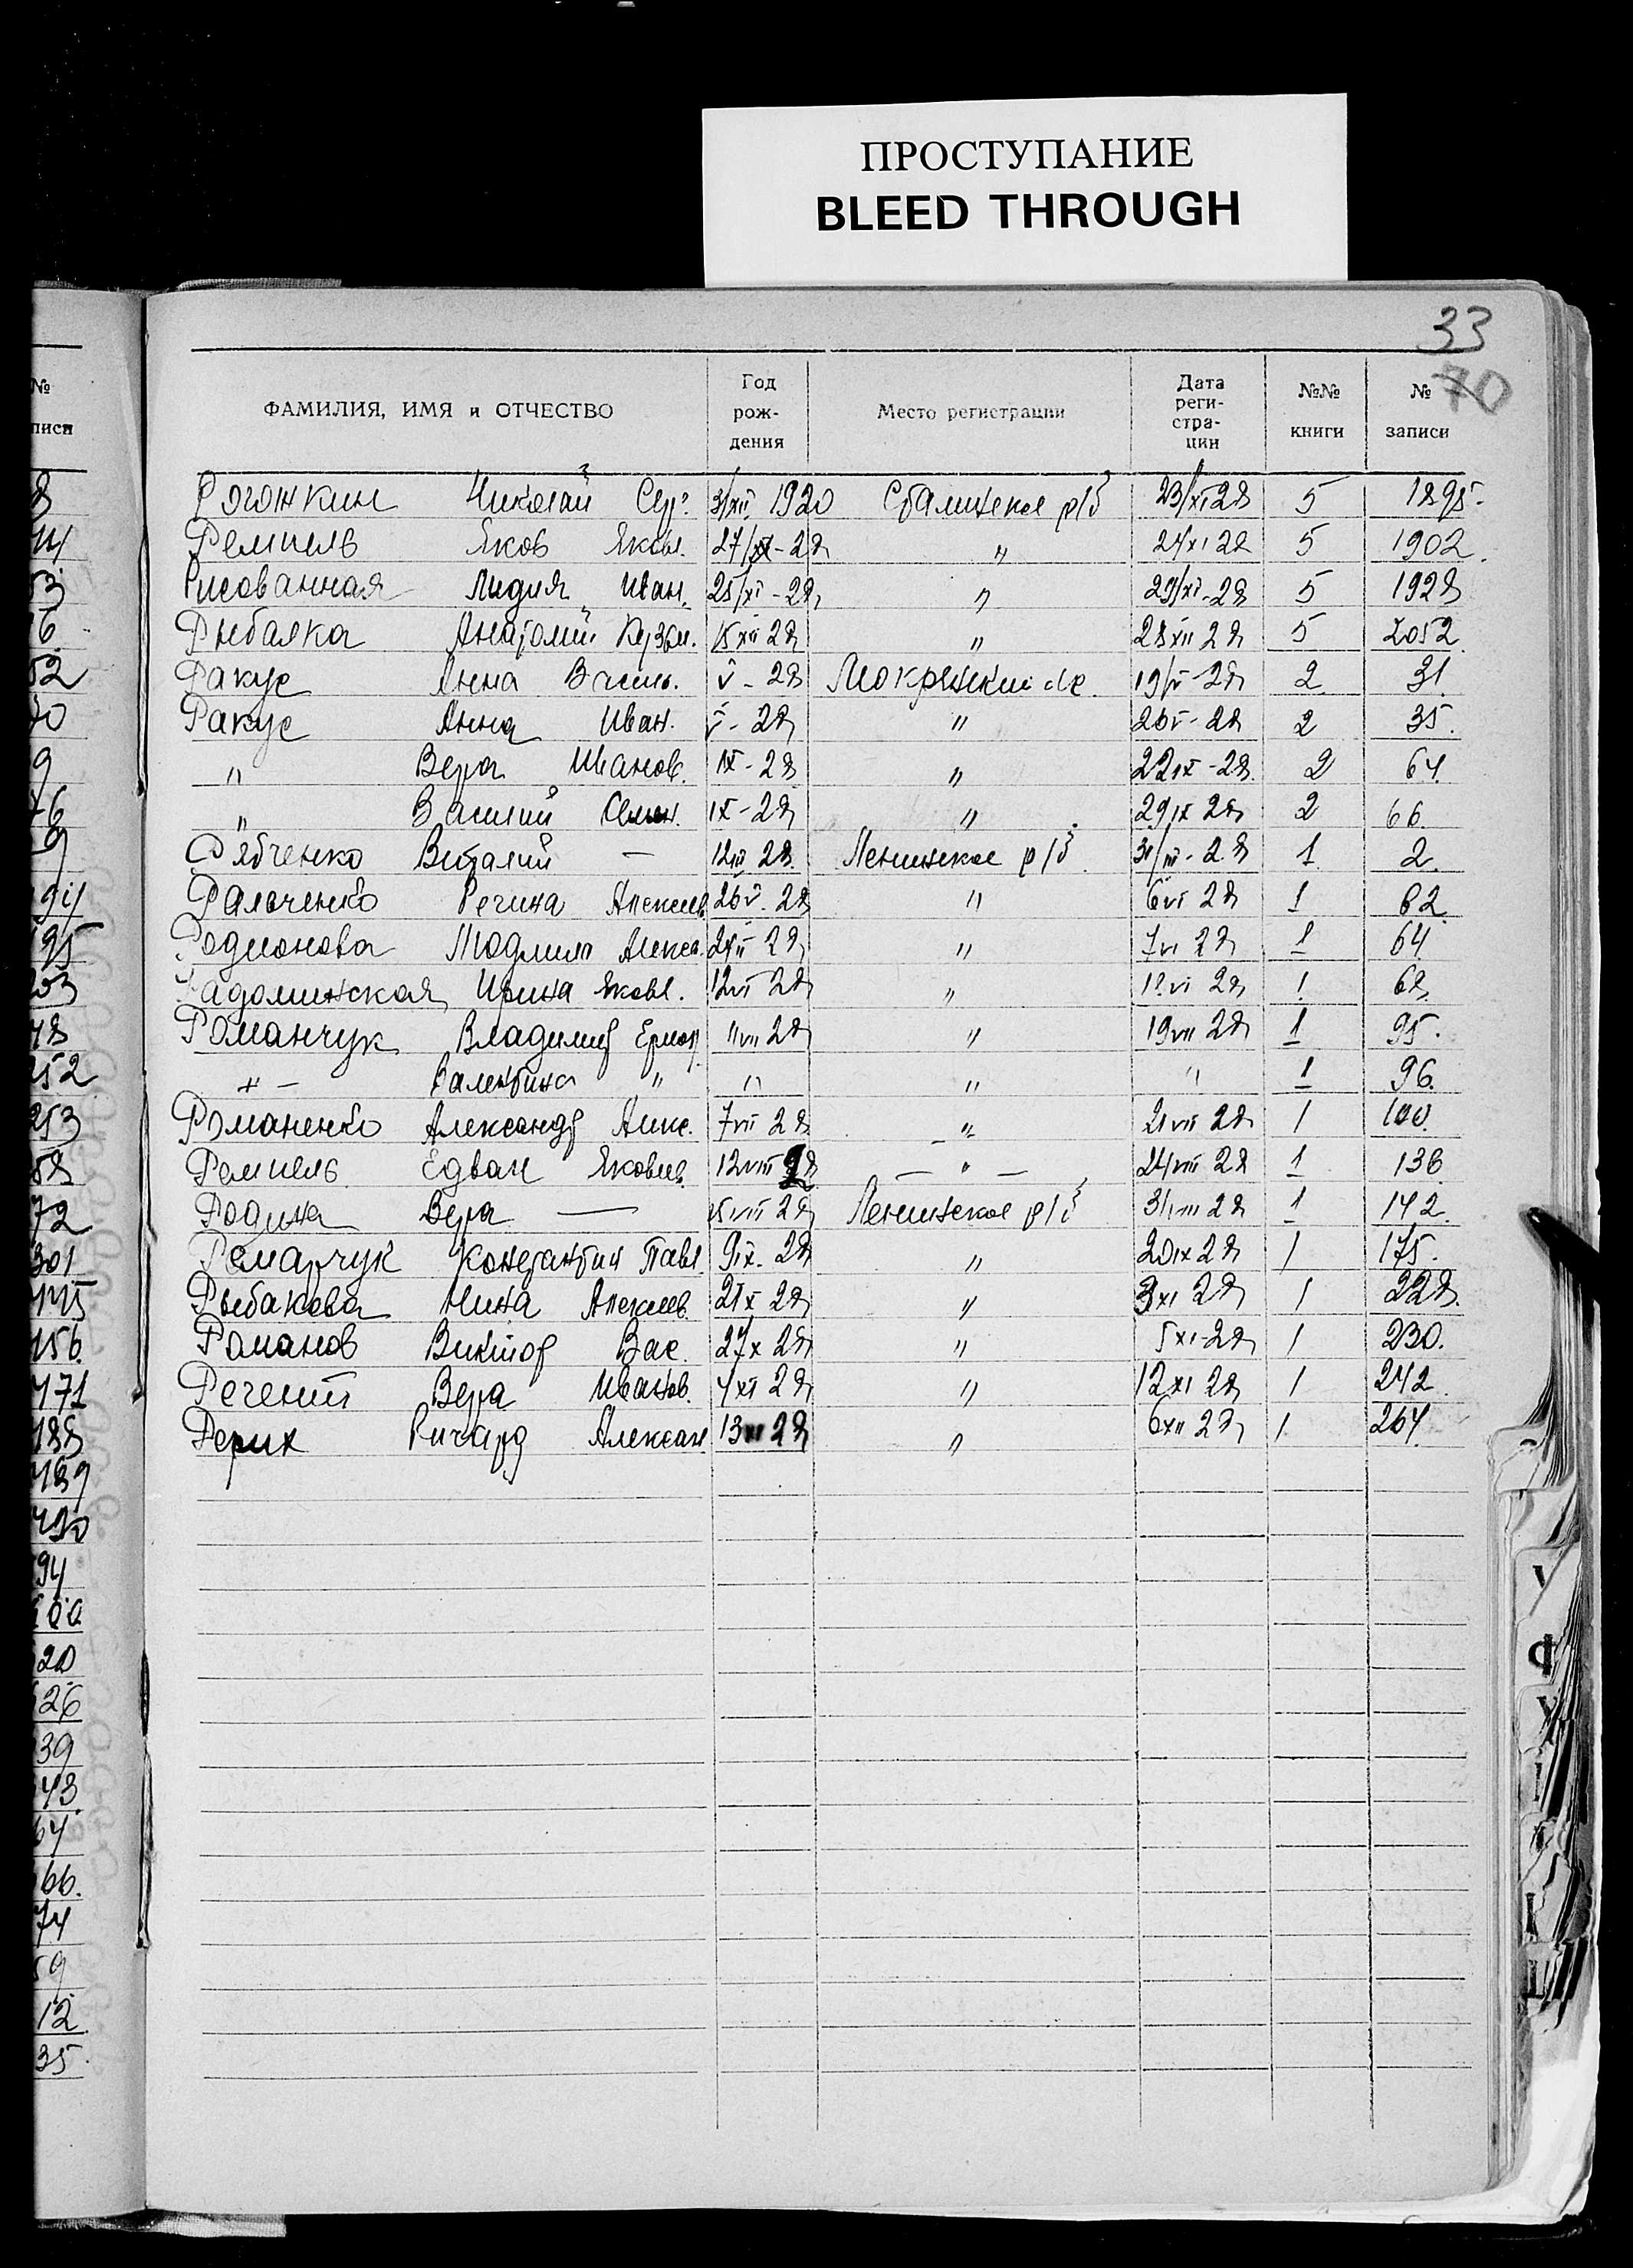 ПРОСТУПАНИЕ
BLEED THROUGH
33
70
ФАМИЛИЯ, ИМЯ и ОТЧЕСТВО Год рож-дения Место регистрации Дата реги-стра-ции №№ книги № записи
Николай 1920 р/б 23/XI 28 5 1895.
Ремпель Яков Яковл. 27/XI-28 " 24/XI 28 5 1902
Рисованная Лидия Иван. 25/XI-28 " 29/XI-28 5 1928
Рыбалка Анатолий Кузьм. 15 XII 28 " 28 XII 28 5 2052
Ракус Анна Василь. V-28 19/V-28 2 31
Ракус Анна Иван. V-28 " 26 V-28 2 35.
" Вера Иванов. IX-28 " 22 IX-28. 2 64.
" Василий Семен. IX-28 " 29 IX 28 2 66
Рябченко Виталий — 12 III 28 Ленинское р/б 31/III-28 1 2.
Ральченко Регина Алексеев. 26 V 28 " 6 VI 28 1 62
Родионова Людмила Алекса. 28 " 7 VI 28 1 64
Радолинская Ирина Яковл. 12 VI 28 " VI 28 1 68
Романчук Владимир 11 VII 28 " 19 VII 28 1 95.
" — Валентина " " " " 1 96.
Романенко Александр 7 VII 28 " 21 VII 28 1 100.
Ремпель Едван Яковлев. 12 VIII 28 — " — 24 VIII 28 1 136
Родина Вера — 15 VIII 28 Ленинское р/б 31 VIII 28 1 142.
Ремарчук Константин Павл. 9 IX. 28 " 20 IX 28 1 175.
Рыбакова Нина Алексеев. 21 X 28 " 3 XI 28 1 228.
Романов Виктор Вас. 27 X 28 " 5 XI-28 1 230.
Вера Иванов. 4 XI 28 " 12 XI 28 1 242.
Рерих Ричард Алексан 13 XI 28 " 6 XII 28 1 264.